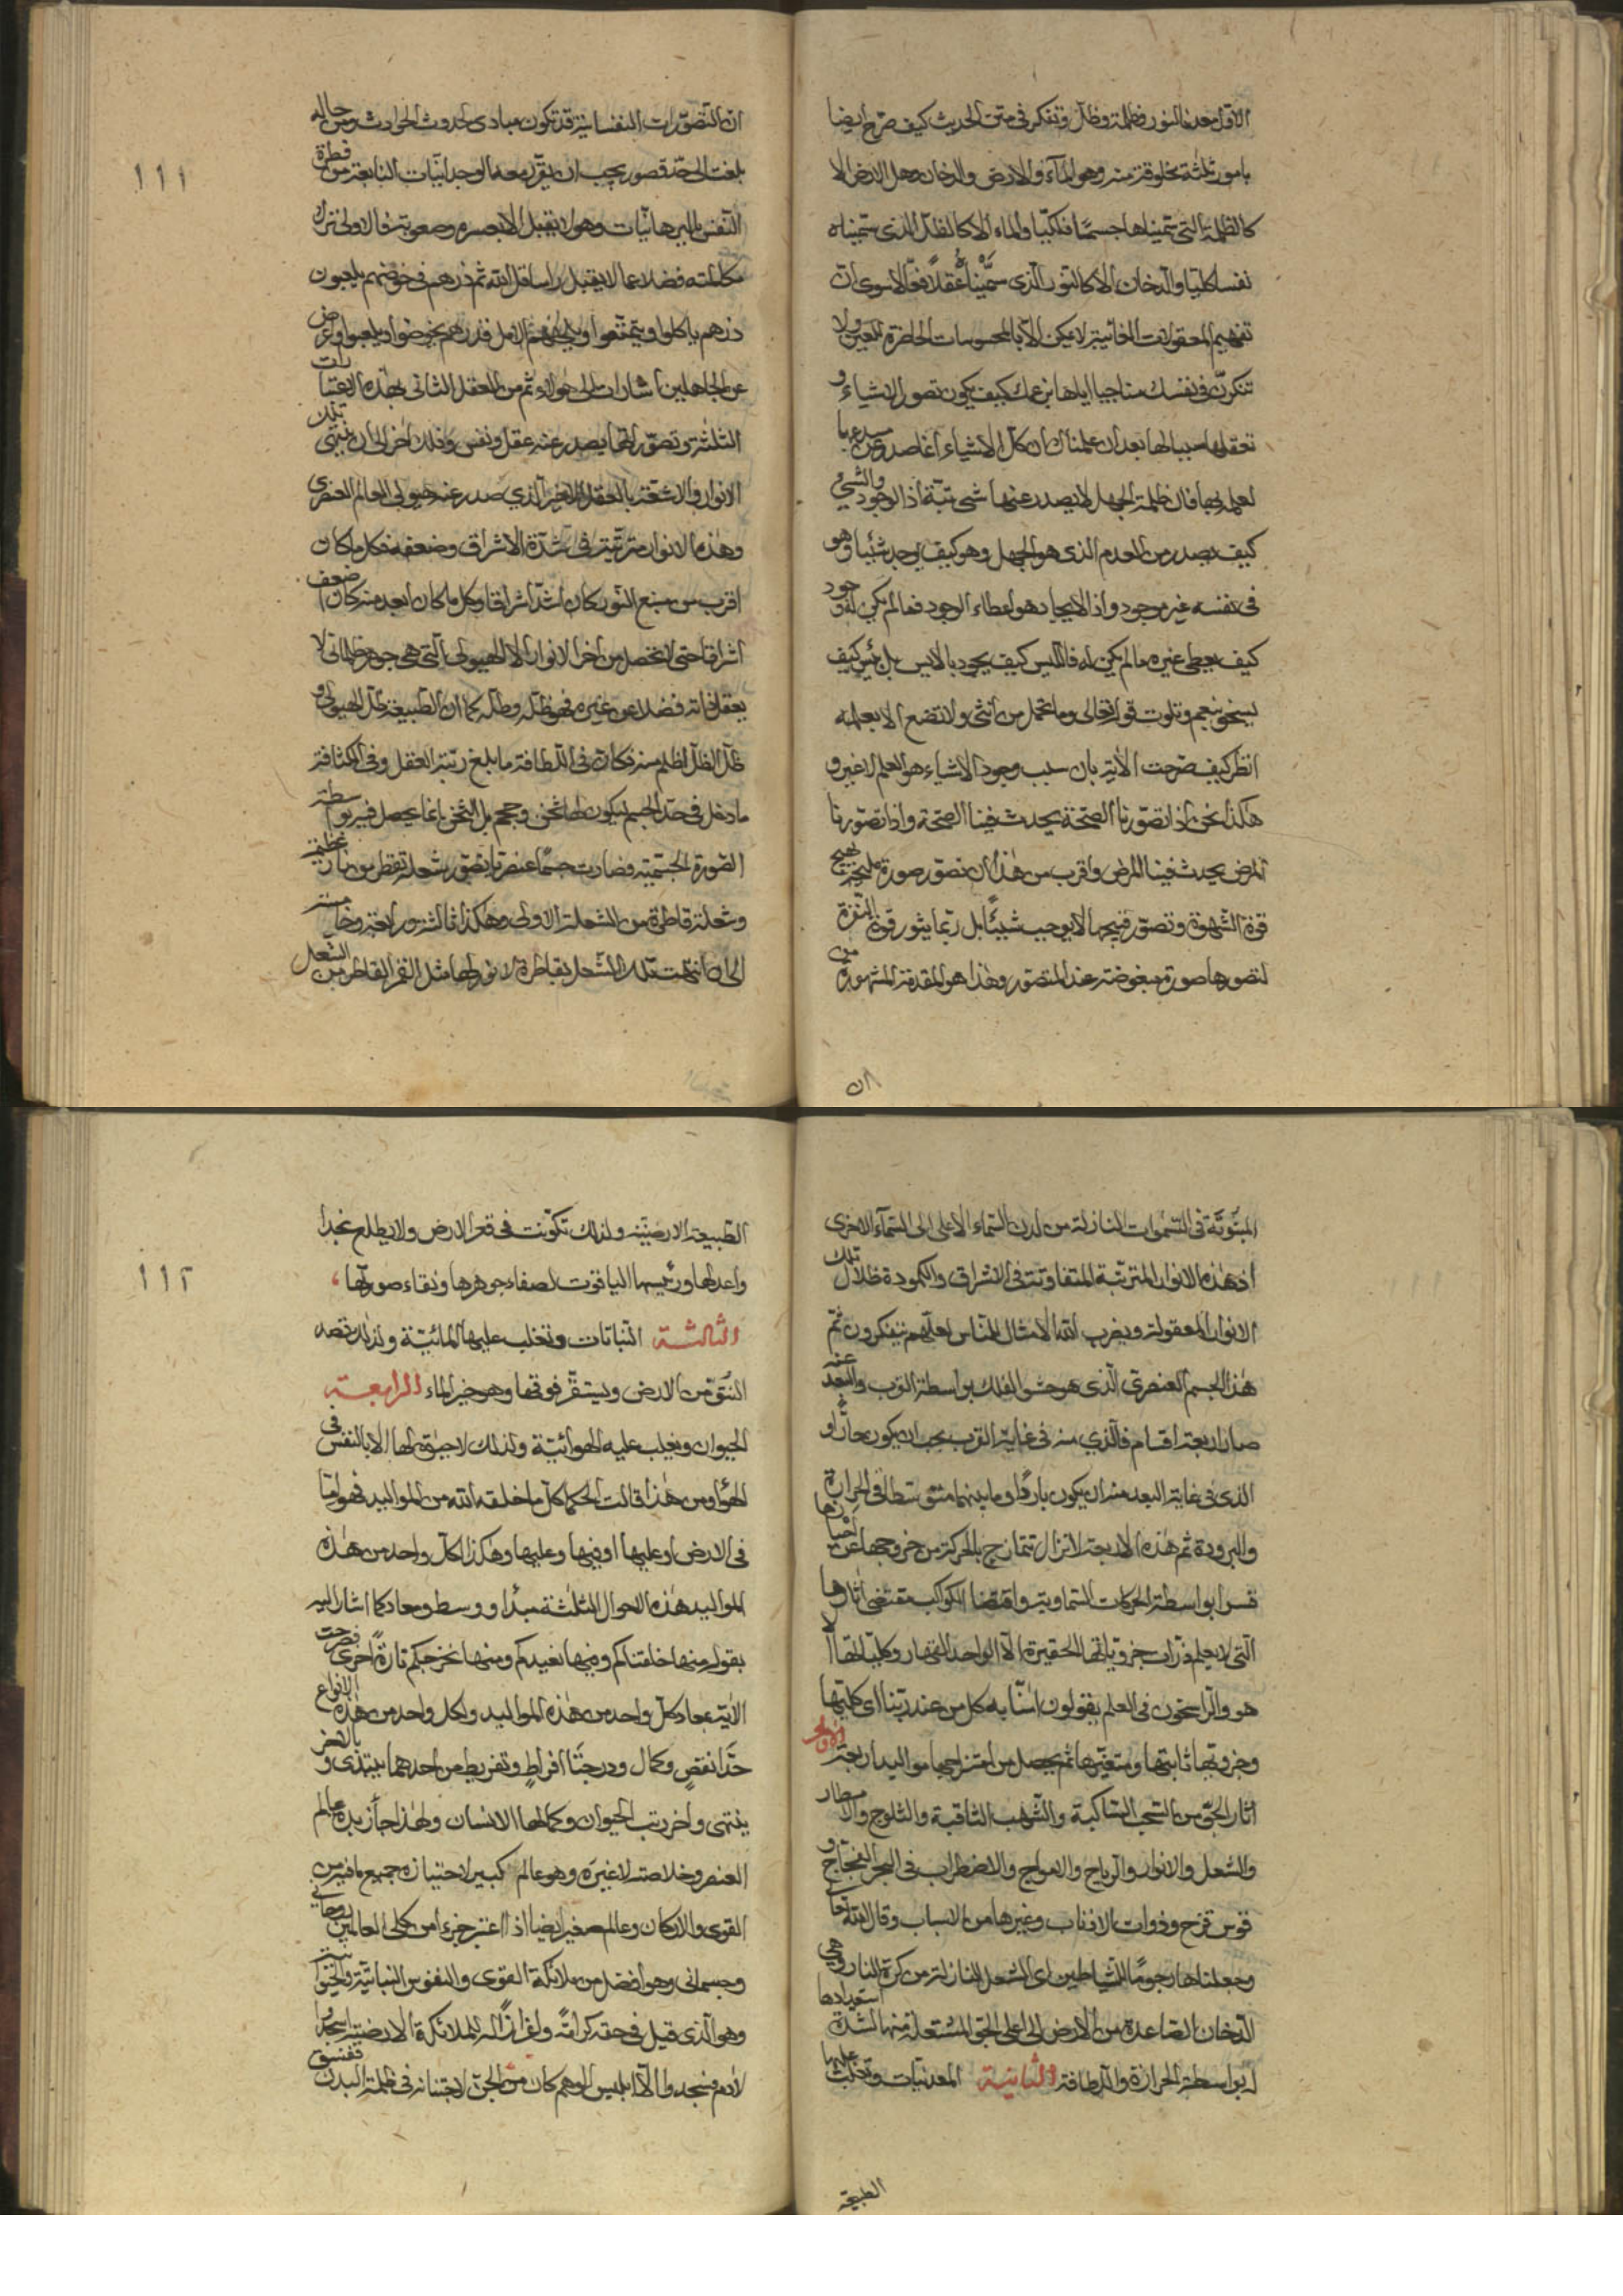 الاول معدن النور وظلمة وظل وتفكر فى متن الحديث كيف صرح ايضا
بامور ثلثة مخلوقة منه وهو الماء والارض والدخان وهل الارض الا
كالظلمة التى سميناها جسما فلكيا والماء الا كالظل الذى سميناه
نفسا كليا والدخان الا كالنور الذى سميناه عقلا فعالا سوى ان
تفهيم المعقولات الغائبة لا يمكن الا بالمحسوسات الحاضرة للعين ولا
تنكرن فى نفسك مناجيا اياها بزعمك كيف يكون تصور الاشياء و
تعقلها سببا لها بعد ان علمناك ان كل الاشياء انما صدر عن مبدعها
لعلمه بها فان ظلمة الجهل لا يصدر عنها شى بتة اذ الوجود والشىء
كيف يصدر من العدم الذى هو الجهل وهو كيف يوجد شيئا وهو
فى نفسه غير موجود واذ الايجاد هو اعطاء الوجود فما لم يكن له وجود
كيف يعطى غيره ما لم يكن له فالليس كيف يجود بالايس بل ليس كيف
يسخو بنعيم وتلوت قوله تعالى وما تحمل من انثى ولا تضع الا بعلمه
انظر كيف صرحت الاية بان سبب وجود الاشياء هو العلم لا غير و
هكذا نحن اذا تصورنا الصحة يحدث فينا الصحة واذا تصورنا
المرض يحدث فينا المرض واقرب من هذا ان تصور صورة مليحة يهيج
قوة الشهوة وتصور قبيحها لا يوجب شيئا بل ربما يثور قوة النفرة
لتصورها صورة مبغوضة عند المتصور وهذا هو المقدمة المشهورة من
ان
ان التصورات النفسانية قد تكون مبادى لحدوث الحوادث ومن حاله
بلغت الى حد قصور يجب ان يقول معه الوجدانيات النابعة من فطرة
النفس بالبرهانيات وهو لا يقبل الا بعسره وصعوبته فالاولى ترك
مكالمته فضلا عما لا يقبل راسا قل الله ثم ذرهم فى خوضهم يلعبون
ذرهم ياكلوا ويتمتعوا ويلههم الامل فذرهم يخوضوا ويلعبوا واعرض
عن الجاهلين اشارات الى هؤلاء ثم من العقل الثانى بهذه الاعتبارات
الثلثة وتصوراتها يصدر عنه عقل ونفس وفلك اخر الى ان ينتهى تلك
الانوار والاشعة بالعقل الاخير الذي صدر عنه هيولى العالم العنصرى
وهذه الانوار مترتبة فى شدة الاشراق وضعفه فكل ما كان
اقرب من منبع النور كان اشد اشراقا وكل ما كان ابعد منه كان اضعف
اشراقا حتى لا تحصل من اخر الانوار الا الهيولى التى هى جوهر ظلمانى لا
يعقل ذاته فضلا عن غيره فهو ظله وظله كما ان الطبيعة ظل الهيولى و
ظل الظل اظلم منه فكان فى اللطافة ما بلغ رتبة العقل وفى الكثافة
ما دخل فى حد الجسم ليكون لها ثخن وحجم بل الثخن انما يحصل فيه بواسطة
الصورة الجسمية فصارت جسما عنصريا تصور شعلة تقطر من نار عظيمة
وشعلة قاطرة من الشعلة الاولى وهكذا ثالثة ورابعة وخامسة
الى ان انتهت تلك الشعل بقاطرة لا نور لها مثل القمر القاطر من الشعل
١١١
المبثوثة فى السموات النازلة من لدن السماء الاعلى الى السماء الاخرى
اذ هذه الانوار المترتبة المتفاوتة فى الاشراق والكمودة ظلال تلك
الانوار المعقولة ويضرب الله الامثال للناس لعلهم يتفكرون ثم
هذا الجسم العنصرى الذى هو حشو الفلك بواسطة القرب والبعد عنه
صار اربعة اقسام فالذي منه فى غاية القرب يجب ان يكون حارا و
الذى فى غاية البعد منه ان يكون باردا وما بينهما متوسطا فى الحرارة
والبرودة ثم هذه الاربعة لا تزال تتمازج بالحركة من خروجها عن احيازها
قسرا بواسطة الحركات السماوية واقتضا الكواكب مقتضى اثارها
التى لا يعلم ذرات جزوياتها الحقيرة الا الواحد القهار وكلياتها الا
هو والراسخون فى العلم يقولون امنا به كل من عند ربنا اى كليتها
وجزوتها ثابتها ومتغيرها ثم يحصل من امتزاجها مواليد اربعة الاولى
اثار الجو من السحب الساكبة والشهب الثاقبة والثلوج والامطار
والشعل والانوار والرياح والامواج والاضطراب فى البحر العجاج و
قوس قزح وذوات الاذناب وغيرها من الاسباب وقال الله تعالى
وجعلناها رجوما للشياطين اى الشعل النازلة من كرة النار وهى
الدخان الصاعدة من الارض الى اعلى الجو المشتعلة منها لشدة استعدادها
له بواسطة الحرارة واللطافة الثانية المعدنيات وتغلب عليها
الطبيعة
الطبيعة الارضية ولذلك تكونت فى قعر الارض ولا يطلع نجدا
واعدلها ورئيسها الياقوت لصفاء جوهرها ونقاء صورتها
الثالثة النباتات وتغلب عليها المائية ولذلك نقصه
النتو من الارض ويستقر فوقها وهو خير الماء الرابعة
الحيوان ويغلب عليه الهوائية ولذلك لا حيوة لها الا بالنفس فى
الهواء ومن هذا قالت الحكما كل ما خلقه الله من المواليد فهو اما
فى الارض او عليها او فيها وعليها وهكذا لكل واحد من هذه
المواليد هذه الاحوال الثلثة مبدأ ووسط ومعاد كما اشار اليه
بقوله منها خلقناكم وفيها نعيدكم ومنها نخرجكم تارة اخرى فصرحت
الاية بمعاد كل واحد من هذه المواليد ولكل واحد من هذه الانواع
حدا نقص وكمال ودرجتا افراط وتفريط من احدهما يبتدى و بالاخر
ينتهى واخر رتب الحيوان وكمالها الانسان ولهذا جاء زبدة عالم
العنصر وخلاصته لا غيره وهو عالم كبير لاحتيازه جميع ما فيه من
القوى والاركان وعالم صغير ايضا اذا اعتبر جزءا من كلى العالمين روحانى
وجسمانى وهو افضل من ملائكة القوى والنفوس النباتية والحيوانية
وهو الذى قيل فى حقه كرامة واعزازا له للملائكة الارضية اسجدوا
لادم فسجدوا الا ابليس الوهم كان من الجن لاجتنانه فى ظلمة البدن ففسق
١١٢